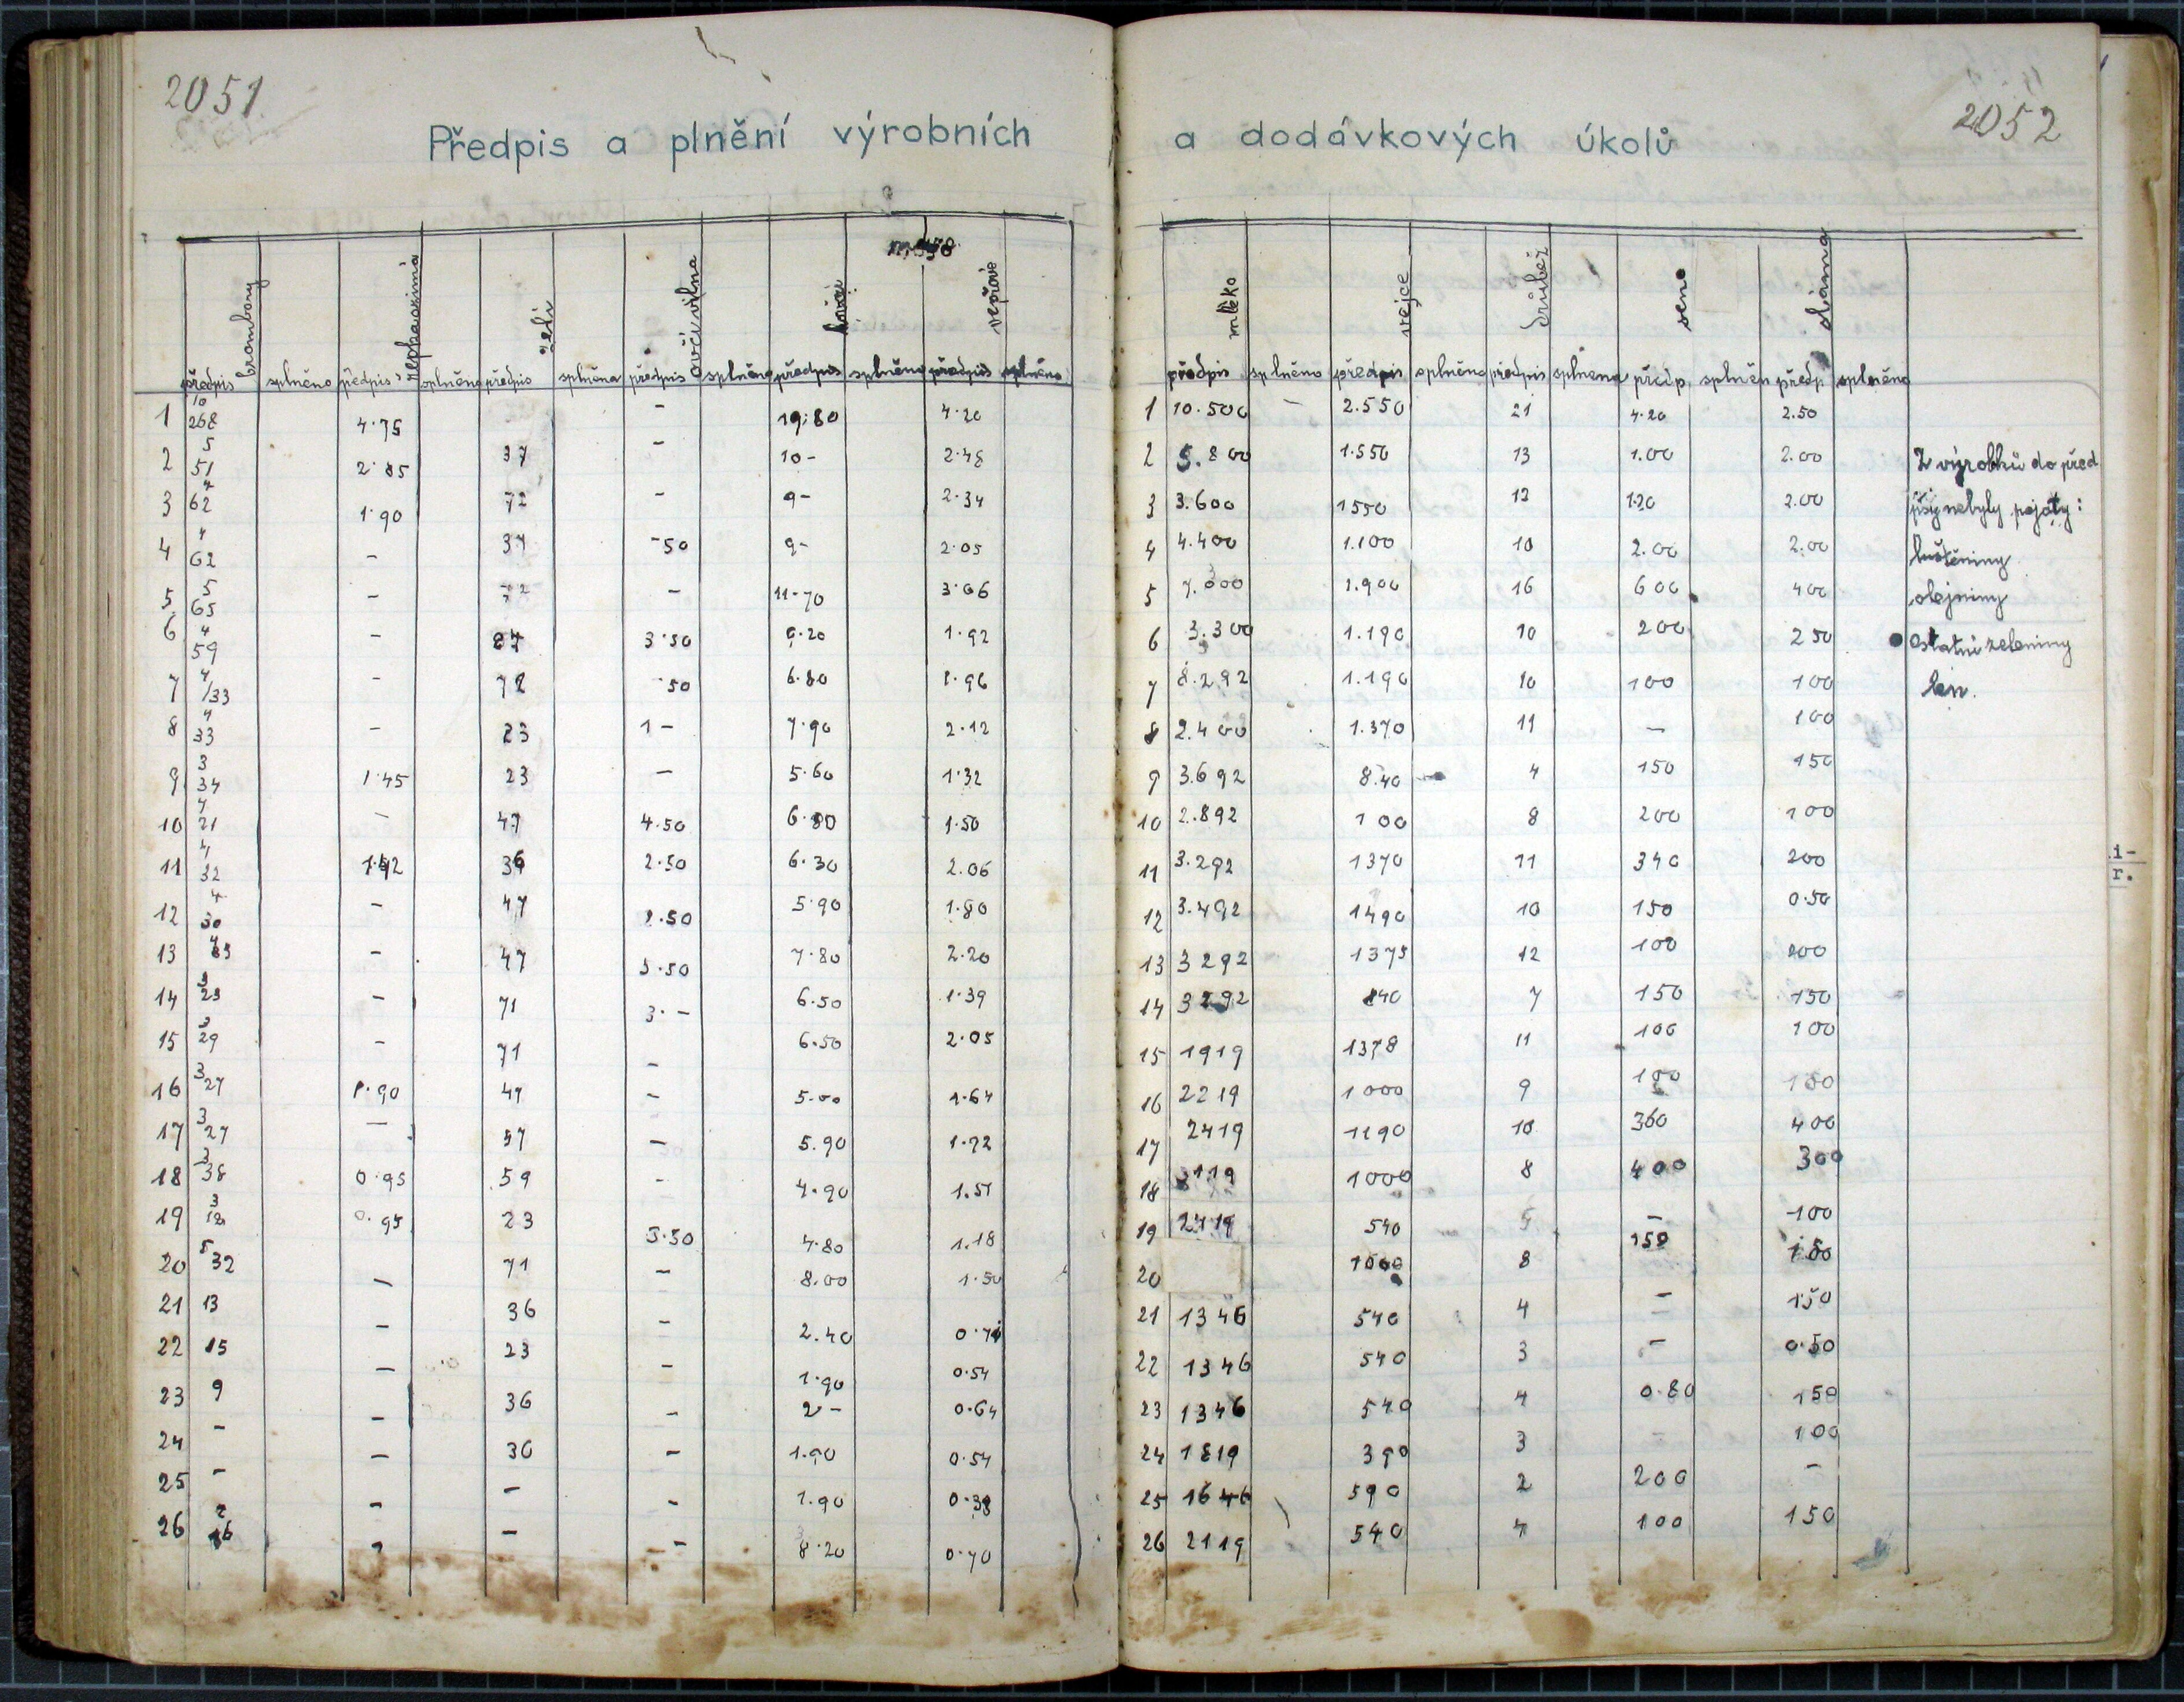 2051
2052
Předpis a plnění výrobních a dodávkových úkolů
maso
brambory řepka ozimá zelí ovčí vlna hovězí vepřové
předpis splněno předpis splněno předpis splněna předpis splněno předpis splněno předpis splněno
1 10 268 4·75 - 19·80 4·20
2 5 51 2·85 37 - 10- 2·48
3 4 62 1·90 72 - 9- 2·34
4 4 62 - 37 -50 9- 2·05
5 5 65 - 72 - 11-70 3·06
6 4 59 - 87 3·50 9·20 1·92
7 4/33 - 72 ·50 6·80 1·96
8 4 33 - 23 1- 7·90 2·12
9 3 34 1·45 23 - 5·60 1·32
10 4 21 - 47 4·50 6·80 1·50
11 4 32 36 2·50 6·30 2.06
12 4 30 - 47 2·50 5·90 1·80
13 4 - 47 3·50 7·80 2·20
14 3 23 - 71 3·- 6·50 1·39
15 3 29 - 71 - 6·50 2·05
16 3 27 1·90 47 - 5·00 1·64
17 3 27 - 57 - 5.90 1·92
18 3 38 0·95 59 - 4·90 1.51
19 3 12 0·95 23 3·50 4·80 1.18
20 5 32 - 71 - 8.00 1·50
21 13 - 36 - 2.40
22 15 - 23 - 1·90 0·54
23 9 - 36 - 2- 0·64
24 - - 36 - 1.90 0·54
25 - - - - 1.90 0·38
26 2 16 - - - 8·20 0·70
mléko vejce drůbež seno sláma
předpis splněno předpis splněno předpis splněna přédp. splněn předp. splněno
1 10.500 - 2.550 21 4·20 2.50
2 5.800 1·550 13 1.00 2.00
3 3.600 1550 12 1·20 2.00
4 4.400 1.100 10 2.00 2.00
5 7.000 1.900 16 600 400
6 3.300 1.190 10 200 250
7 8.292 1.190 10 100 100
8 2.400 1.370 11 - 100
9 3.692 8.40 4 150 150
10 2.892 100 8 200 100
11 3.292 1370 11 340 200
12 3.492 1490 10 150 0·50
13 3292 1375 12 100 200
14 3292 840 7 150 150
15 1919 1378 11 100 100
16 2219 1000 9 100 100
17 2419 1190 10 360 400
18 3119 1000 8 400 300
19 2419 540 5 - 100
20 1000 8 150 150
21 1346 540 4 - 150
22 1346 540 3 - 0·50
23 1346 540 4 0·80 150
24 1819 390 3 - 100
25 1646 590 2 200 -
26 2119 540 4 100 150
Z výrobků do před
pisu nebyly pojaty:
luštěniny
olejniny
ostatní zeleniny
len.
i-
r.